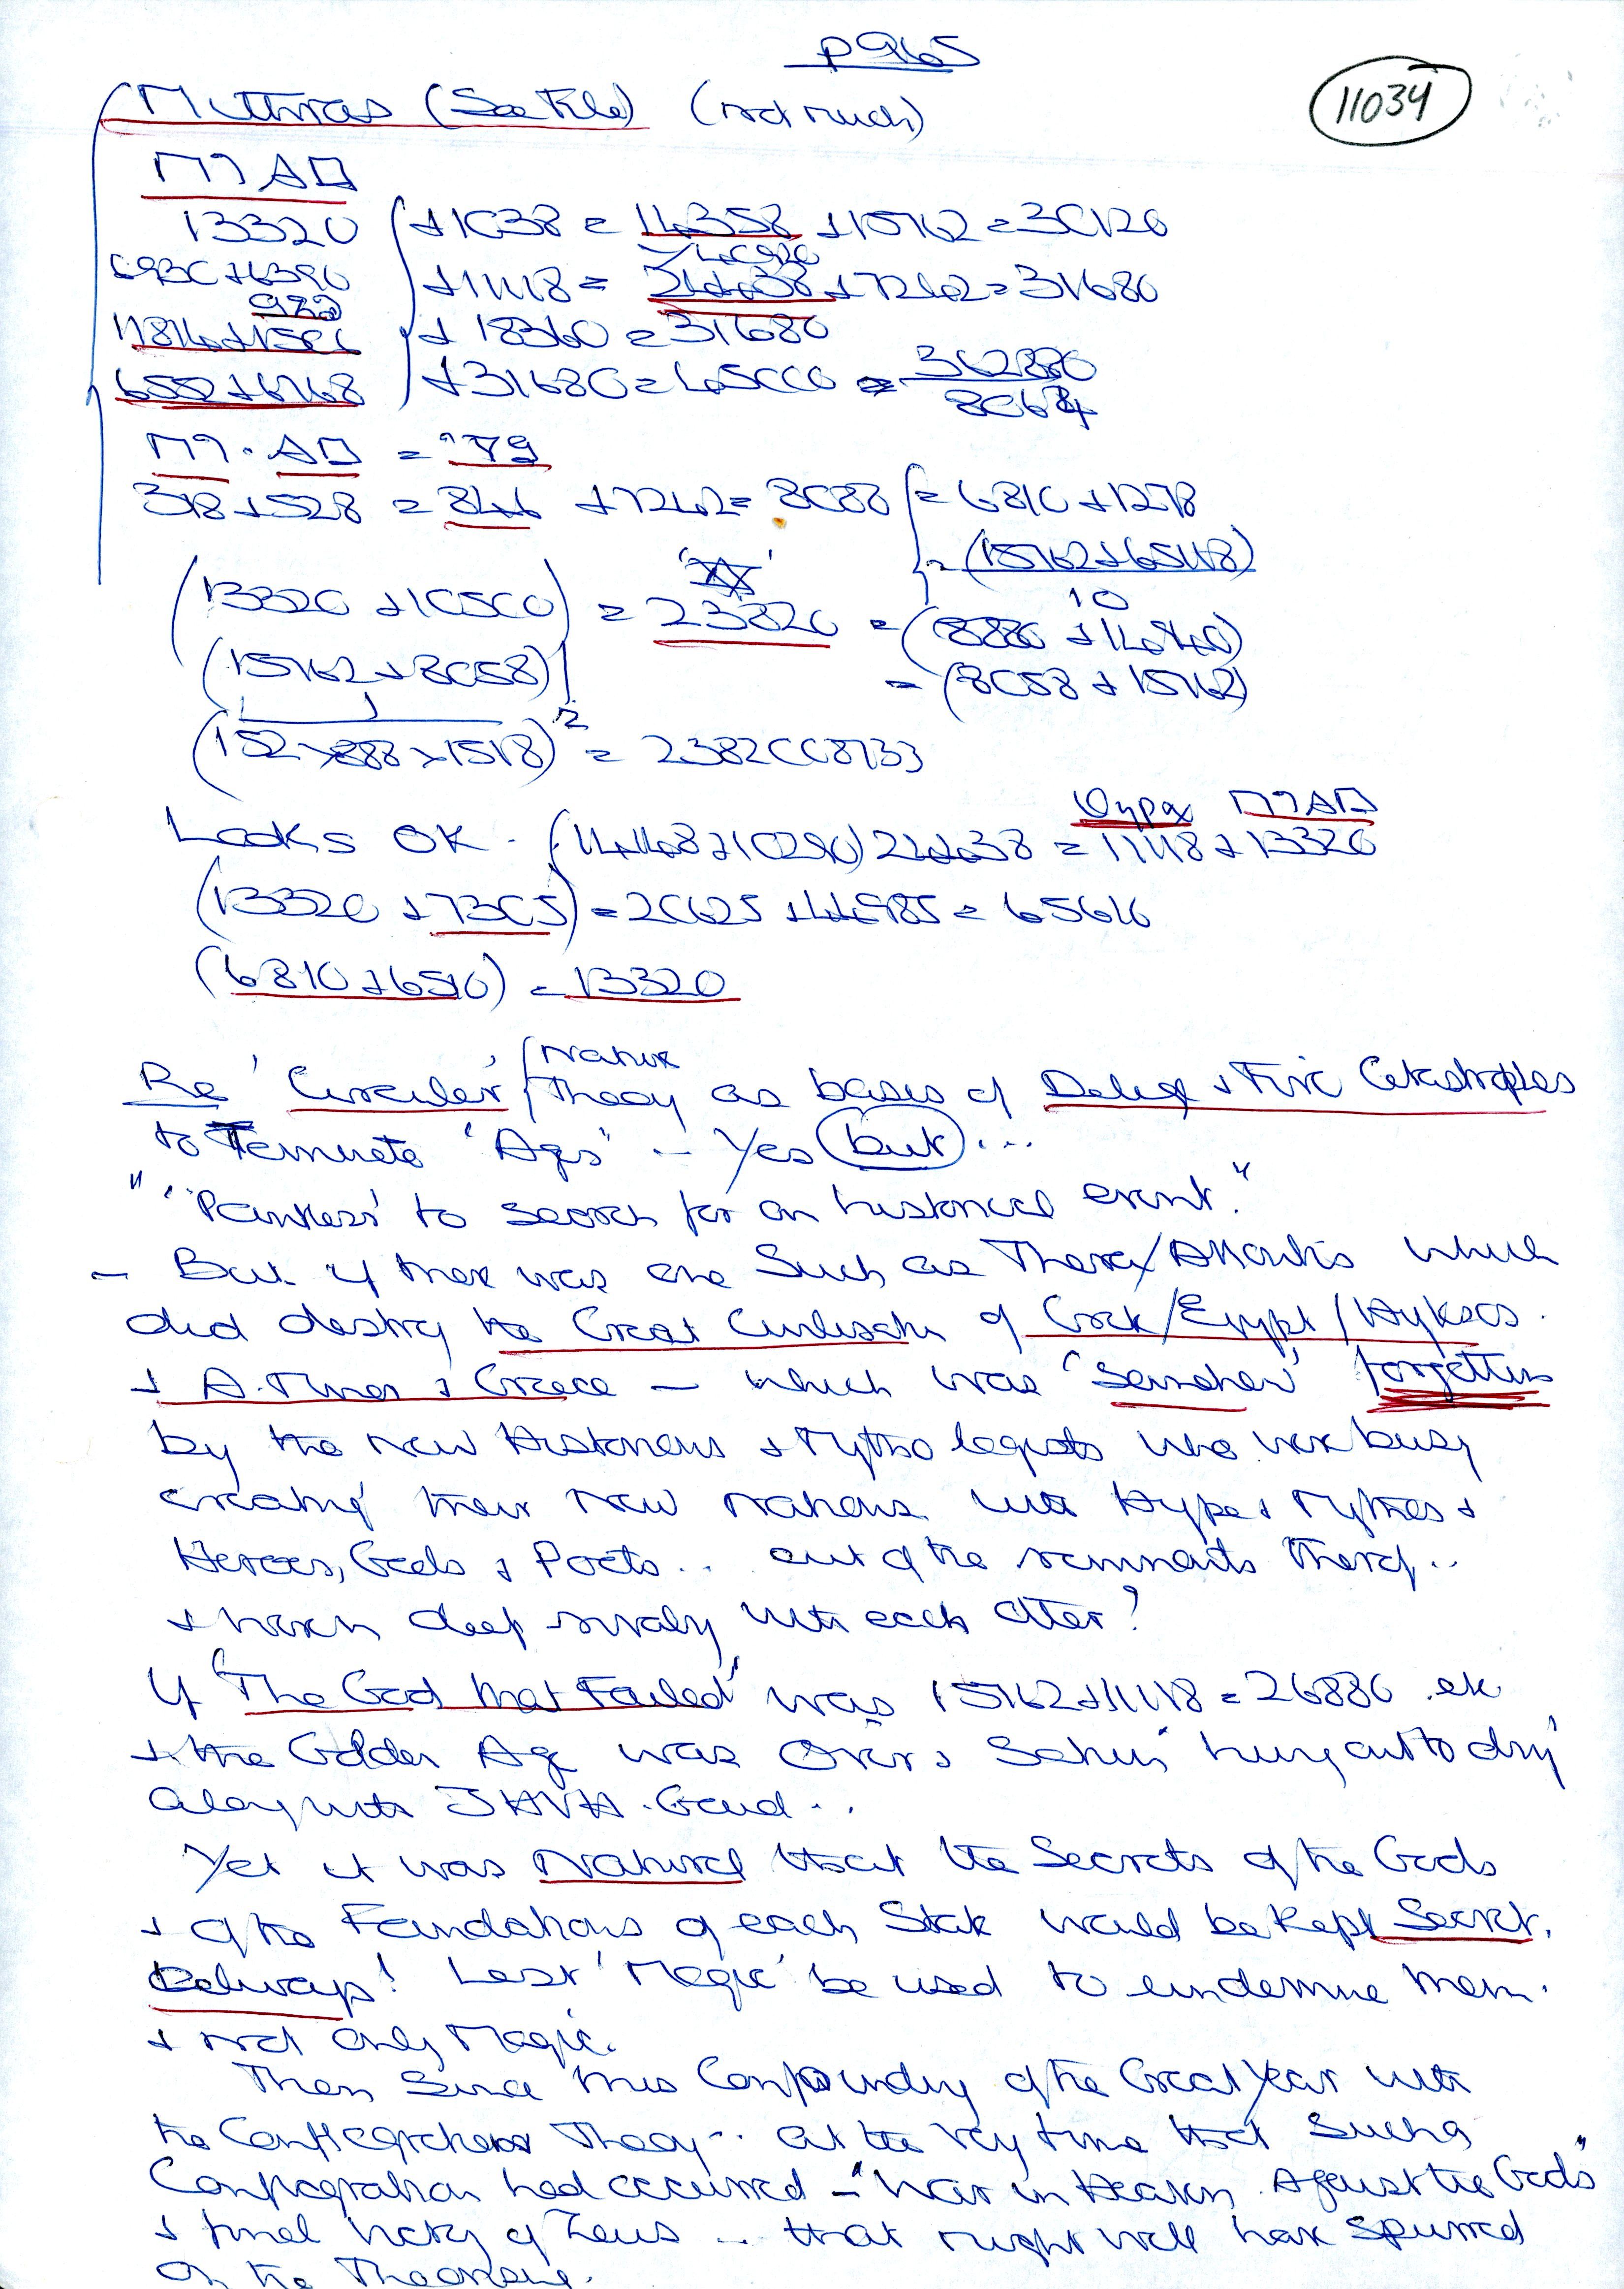 p965
11034
Mithras (See File) (not much)
13320 +1038 = 14358 +15762 = 30120
6930 + 6390 +11118 = 24438 + 7242 = 31680
+ 18360 = 31680
6552 + 6768 + 31680 = 45000 = 362880
318 + 528 = 846 + 7242 = 8088 = 6810 + 1278
= (15762 + 65118)
10
(13320 + 10500) = 23820 = (8880 + 14940)
(15762 + 8058) = (8058 + 15762)
(152 × 888 × 1518)² = 2382008733
Looks OK. 24438 = 11118 + 13320
(13320 + 7305) = 20625 + 44985 = 65610
(6810 + 6510) = 13320
Nature
Re 'Circular' Theory as bases of Deluge + Fire Catastrophes
to Terminate 'Ages' - Yes but ...
"'Pointless' to search for an historical event."
- But if there was one such as Thera/Atlantis which
did destroy the Great Civilisation of Crete/Egypt/Hyksos.
+ A. Minor + Greece - which was 'Somehow' forgotten
by the new Historians + Mythologists who were busy
creating their New Nations with Hype + Mythes +
Heroes, Gods + Poets .. out of the remnants thereof ..
+ deep rivalry with each other?
If 'The God that Failed' was 15762 + 11118 = 26880 etc
+ the Golden Age was over + Saturn hung out to dry
along with JAVA.
Yet it was Natural that the Secrets of the Gods
+ of the Foundations of each State would be kept Secret.
always! Lest 'Magic' be used to undermine them.
+ not only Magic.
Then Since this Compounding of the Great Year with
the Conflagration Theory .. at the very time that such a
Conflagration had occurred - "War in Heaven Against the Gods"
+ final victory of Zeus ... that might well have spurred
On the